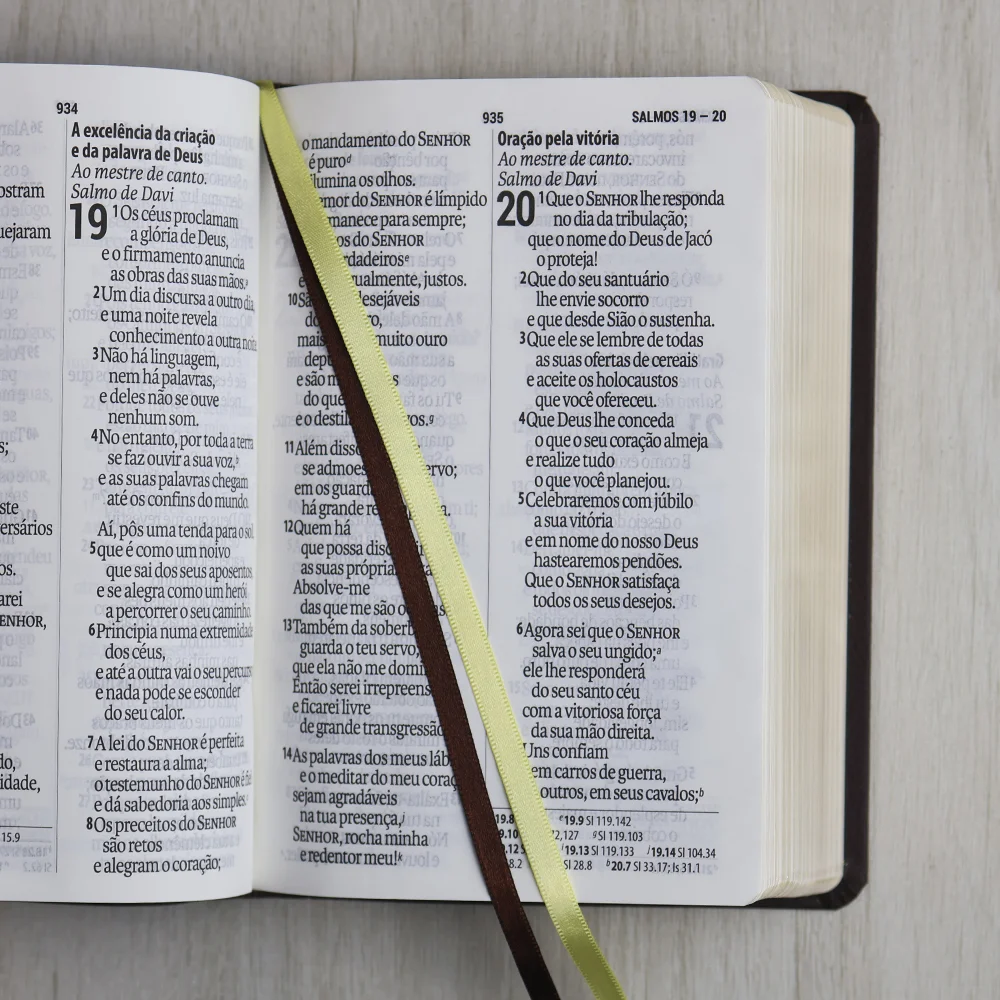 934
ostram
uejaram
s;
ste
versários
os.
arei
ENHOR,
do,
idade,
15.9
A excelência da criação
e da palavra de Deus
Ao mestre de canto.
Salmo de Davi
19 1Os céus proclamam
a glória de Deus,
e o firmamento anuncia
as obras das suas mãos.a
2Um dia discursa a outro dia,
e uma noite revela
conhecimento a outra noite.
3Não há linguagem,
nem há palavras,
e deles não se ouve
nenhum som.
4No entanto, por toda a terra
se faz ouvir a sua voz,b
e as suas palavras chegam
até os confins do mundo.
Aí, pôs uma tenda para o sol,
5que é como um noivo
que sai dos seus aposentos,
e se alegra como um herói
a percorrer o seu caminho.
6Principia numa extremidade
dos céus,
e até a outra vai o seu percurso
e nada pode se esconder
do seu calor.
7A lei do SENHOR é perfeita
e restaura a alma;
o testemunho do SENHOR é
e dá sabedoria aos simples.
8Os preceitos do SENHOR
são retos
e alegram o coração;
935
SALMOS 19 – 20
o mandamento do SENHOR
é purod
ilumina os olhos.
mor do SENHOR é límpido
manece para sempre;
os do SENHOR
rdadeirose
e ualmente, justos.
10 esejáveis
do ro,
mais muito ouro
dep
e são m s
do que
e o destil vos.g
11Além disso ervo;
se admoes
em os guard
há grande re a.
12Quem há
que possa disc
as suas própria
Absolve-me
das que me são oc as.
13Também da soberb
guarda o teu servo,
que ela não me domi
Então serei irrepreens
e ficarei livre
de grande transgressão
14As palavras dos meus láb
e o meditar do meu coraç
sejam agradáveis
na tua presença,j
SENHOR, rocha minha
e redentor meu!k
Oração pela vitória
Ao mestre de canto.
Salmo de Davi
20 1Que o SENHOR lhe responda
no dia da tribulação;
que o nome do Deus de Jacó
o proteja!
2Que do seu santuário
lhe envie socorro
e que desde Sião o sustenha.
3Que ele se lembre de todas
as suas ofertas de cereais
e aceite os holocaustos
que você ofereceu.
4Que Deus lhe conceda
o que o seu coração almeja
e realize tudo
o que você planejou.
5Celebraremos com júbilo
a sua vitória
e em nome do nosso Deus
hastearemos pendões.
Que o SENHOR satisfaça
todos os seus desejos.
6Agora sei que o SENHOR
salva o seu ungido;a
ele lhe responderá
do seu santo céu
com a vitoriosa força
da sua mão direita.
Uns confiam
em carros de guerra,
outros, em seus cavalos;b
19.8 e19.9 Sl 119.142
9.10 72,127 gSl 119.103
.12 S i19.13 Sl 119.133 j19.14 Sl 104.34
8.2 Sl 28.8 b20.7 Sl 33.17; Is 31.1